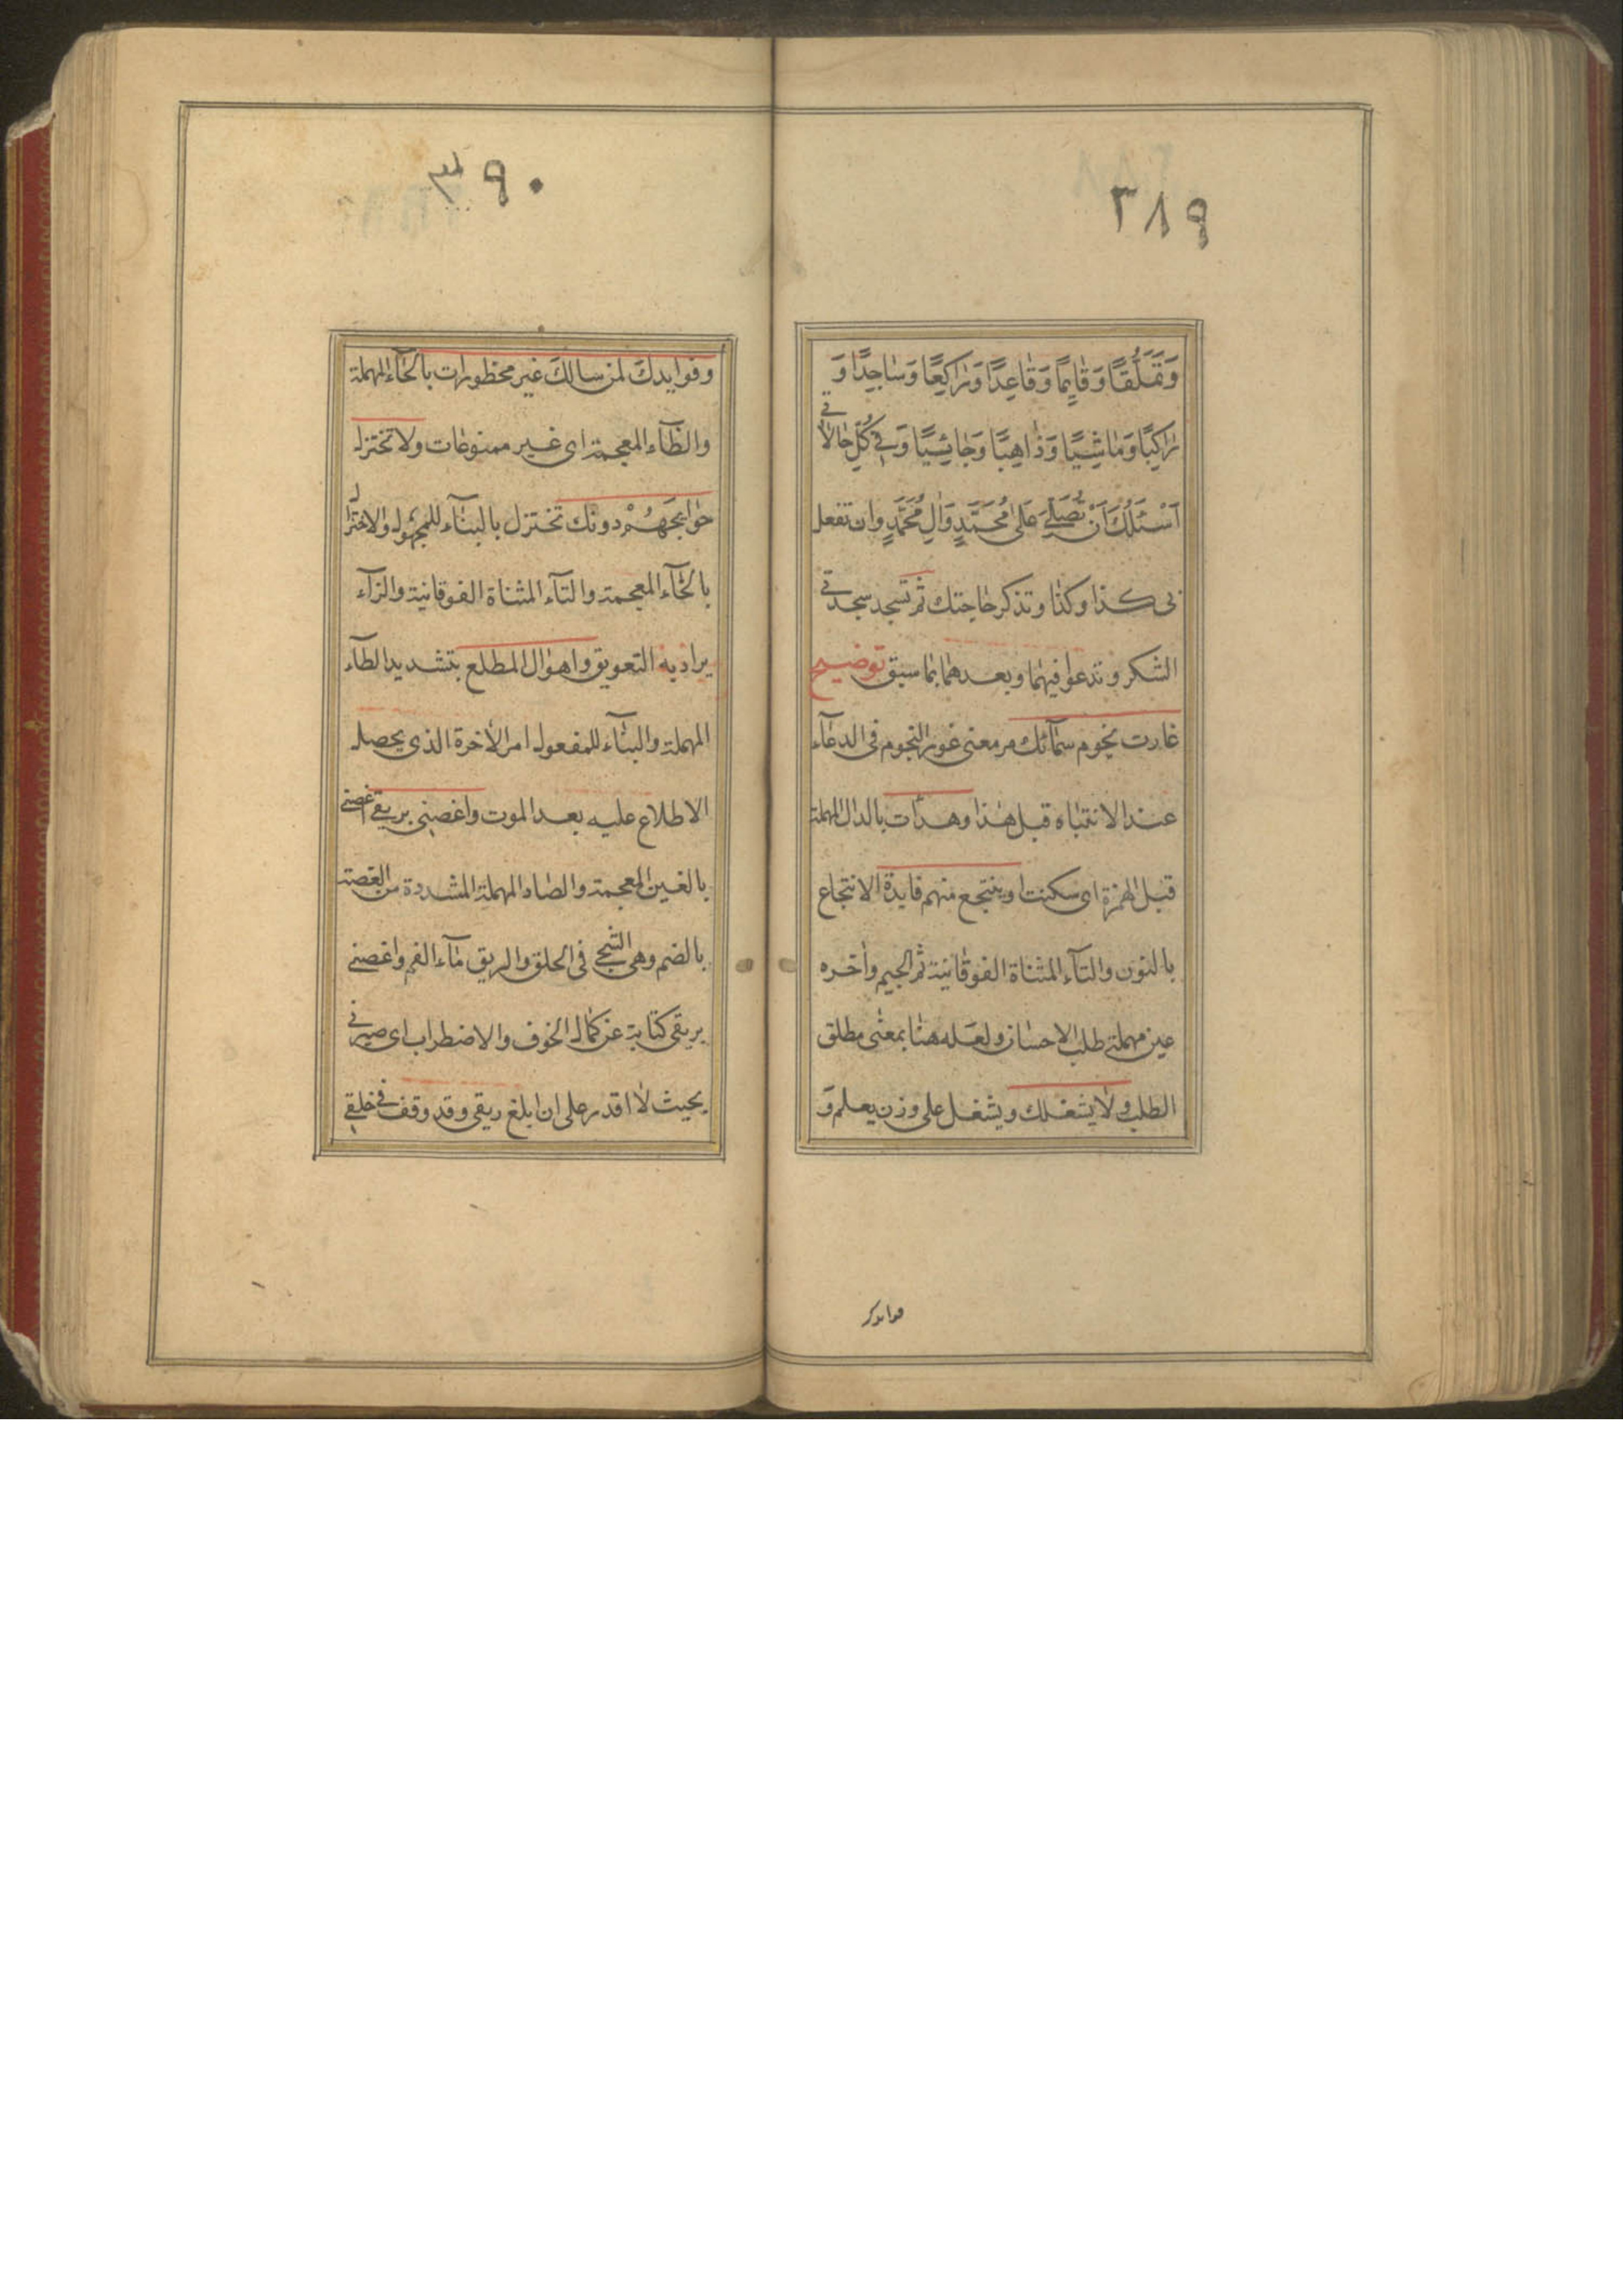 ٣٨٩
وَتَمَلُّقًا وَقَايِمًا وَقَاعِدًا وَرَاكِعًا وَسَاجِدًا وَ
رَاكِبًا وَمَاشِيًا وَذَاهِبًا وَجَائِيًا وَفِي كُلِّ حَالَاتِي
اَسْئَلُكَ اَنْ تُصَلِّيَ عَلىٰ مُحَمَّدٍ وَآلِ مُحَمَّدٍ وان تفعل
بى كذا وكذا وتذكر حاجتك ثم تسجد سجدتى
الشكر وتدعو فيهما وبعدهما بما سبق توضيح
غارت نجوم سمائك مر معنى غور النجوم فى الدعاء
عند الانتباه قبل هذا وهدأت بالدال المهملة
قبل الهمزة اى سكنت وينتجع منهم فايدة الانتجاع
بالنون والتاء المثناة الفوقانية ثم الجيم وآخره
عين مهملة طلب الاحسان ولعله هنا بمعنى مطلق
الطلب ولا يشغلك ويشغل على وزن يعلم وَ
فوايدك
٣٩٠
وفوايدك لمن سالك غير محظورات بالحاء المهملة
والظاء المعجمة اى غير ممنوعات ولا تختزل
حوايجهم دونك تختزل بالبناء للمجهول والاختزال
بالخاء المعجمة والتاء المثناة الفوقانية والزاء
يراد به التعويق واهوال المطلع بتشديد الطاء
المهملة والبناء للمفعول امر الآخرة الذى يحصل
الاطلاع عليه بعد الموت واغصنى بريقى اغصنى
بالغين المعجمة والصاد المهملة المشددة من الغصة
بالضم وهى الشجى فى الحلق والريق ماء الفم واغصنى
بريقى كناية عن كمال الخوف والاضطراب اى صيرنى
بحيث لا اقدر على ان ابلغ ريقى وقد وقف فى حلقى